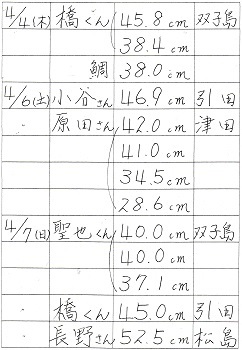 4/4(木) 橋くん 45.8cm 双子島
38.4cm
鯛 38.0cm
4/6(土) 小谷さん 46.9cm 引田
〃 原田さん 42.0cm 津田
41.0cm
34.5cm
28.6cm
4/7(日) 聖也くん 40.0cm 双子島
40.0cm
37.1cm
〃 橋くん 45.0cm 引田
〃 長野さん 52.5cm 松島